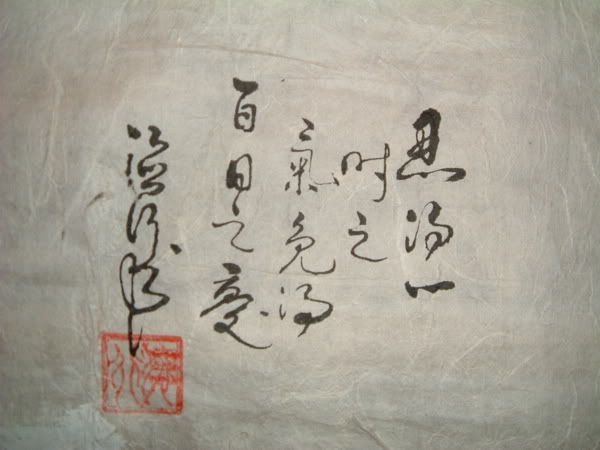 忍得一
时之
氣免得
百日之憂